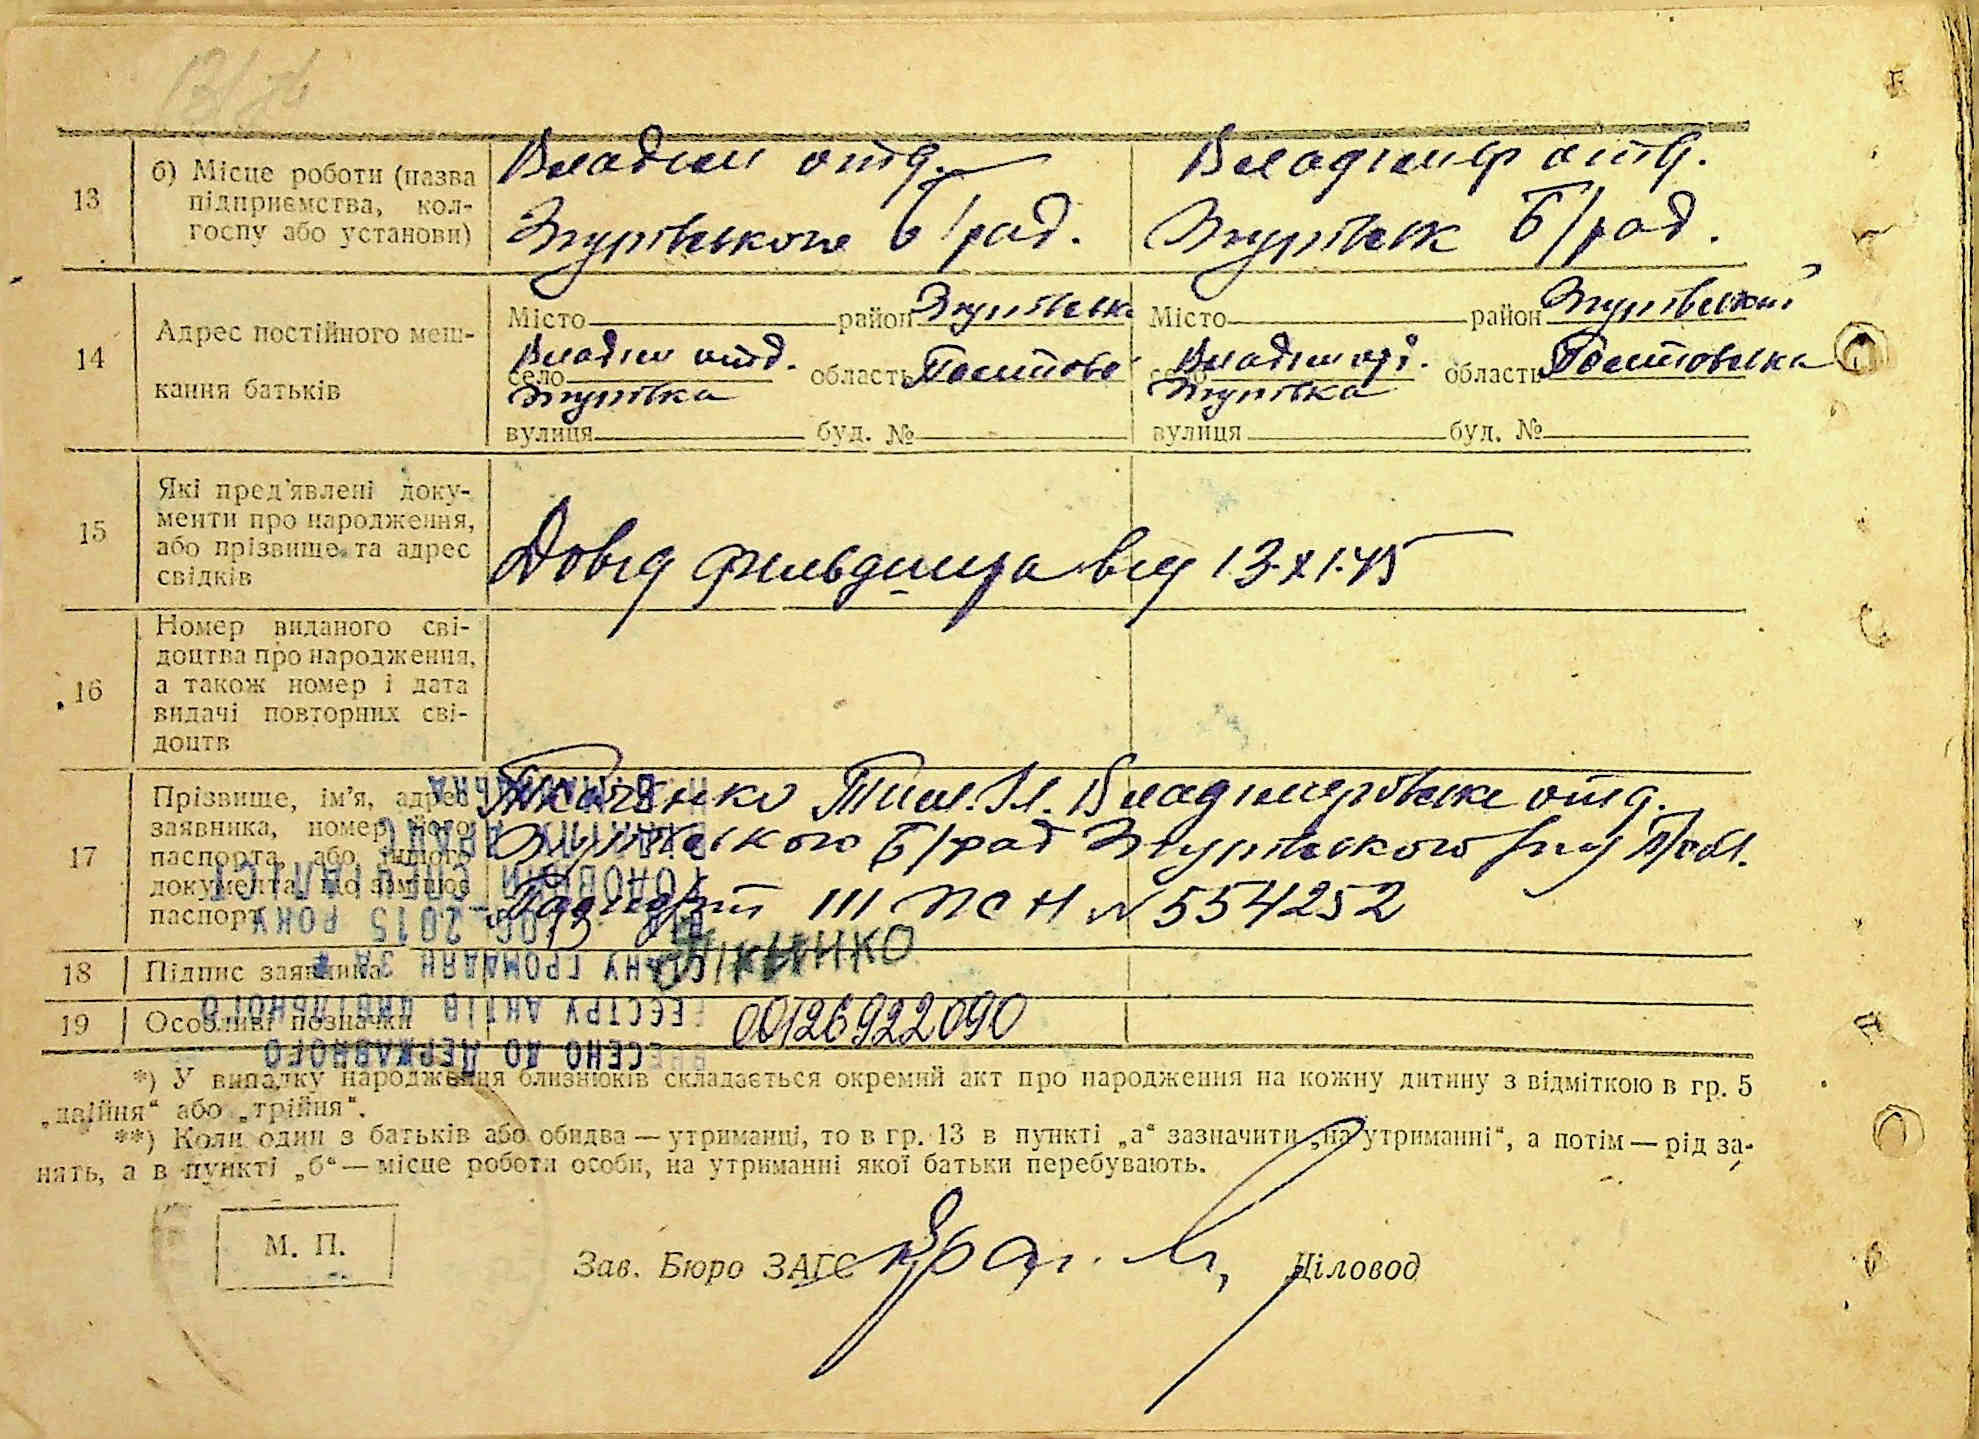 13
б) Місце роботи (назва
підприємства, кол-
госпу або установи)
Владим отд.
Згурівського б/рад.
Владімер отд.
Згурівськ Б/рад.
14
Адрес постійного меш-
кання батьків
Місто район Згурівськ
Владим отд.
село область Полтавс
Згурівка
вулиця буд. №
Місто район Згурівський
Владим
село область Полтавська
Згурівка
вулиця буд. №
15
Які пред'явлені доку-
менти про народження,
або прізвище та адрес
свідків
Довід фельдшера від 13.XI.45
16
Номер виданого сві-
доцтва про народження,
а також номер і дата
видачі повторних сві-
доцтв
17
Прізвище, ім'я, адрес
заявника, номер його
паспорта, або іншого
документа, що замінює
паспорт
Ткаченко Тим. Владімерівське отд.
Згурівського Б/рад Згурівського р-ну П/обл.
Паспорт III ПСН № 554252
18
Підпис заявника
19
Особливі позначки
00126922090
ВНЕСЕНО ДО ДЕРЖАВНОГО
РЕЄСТРУ АКТІВ ЦИВІЛЬНОГО
СТАНУ ГРОМАДЯН ЗА №
2015 РОКУ
ГОЛОВНИЙ СПЕЦІАЛІСТ
*) У випадку народження близнюків складається окремий акт про народження на кожну дитину з відміткою в гр. 5
„двійня“ або „трійня“.
**) Коли один з батьків або обидва — утриманці, то в гр. 13 в пункті „а“ зазначити „на утриманні“, а потім — рід за-
нять, а в пункті „б“ — місце роботи особи, на утриманні якої батьки перебувають.
М. П.
Зав. Бюро ЗАГС
Діловод